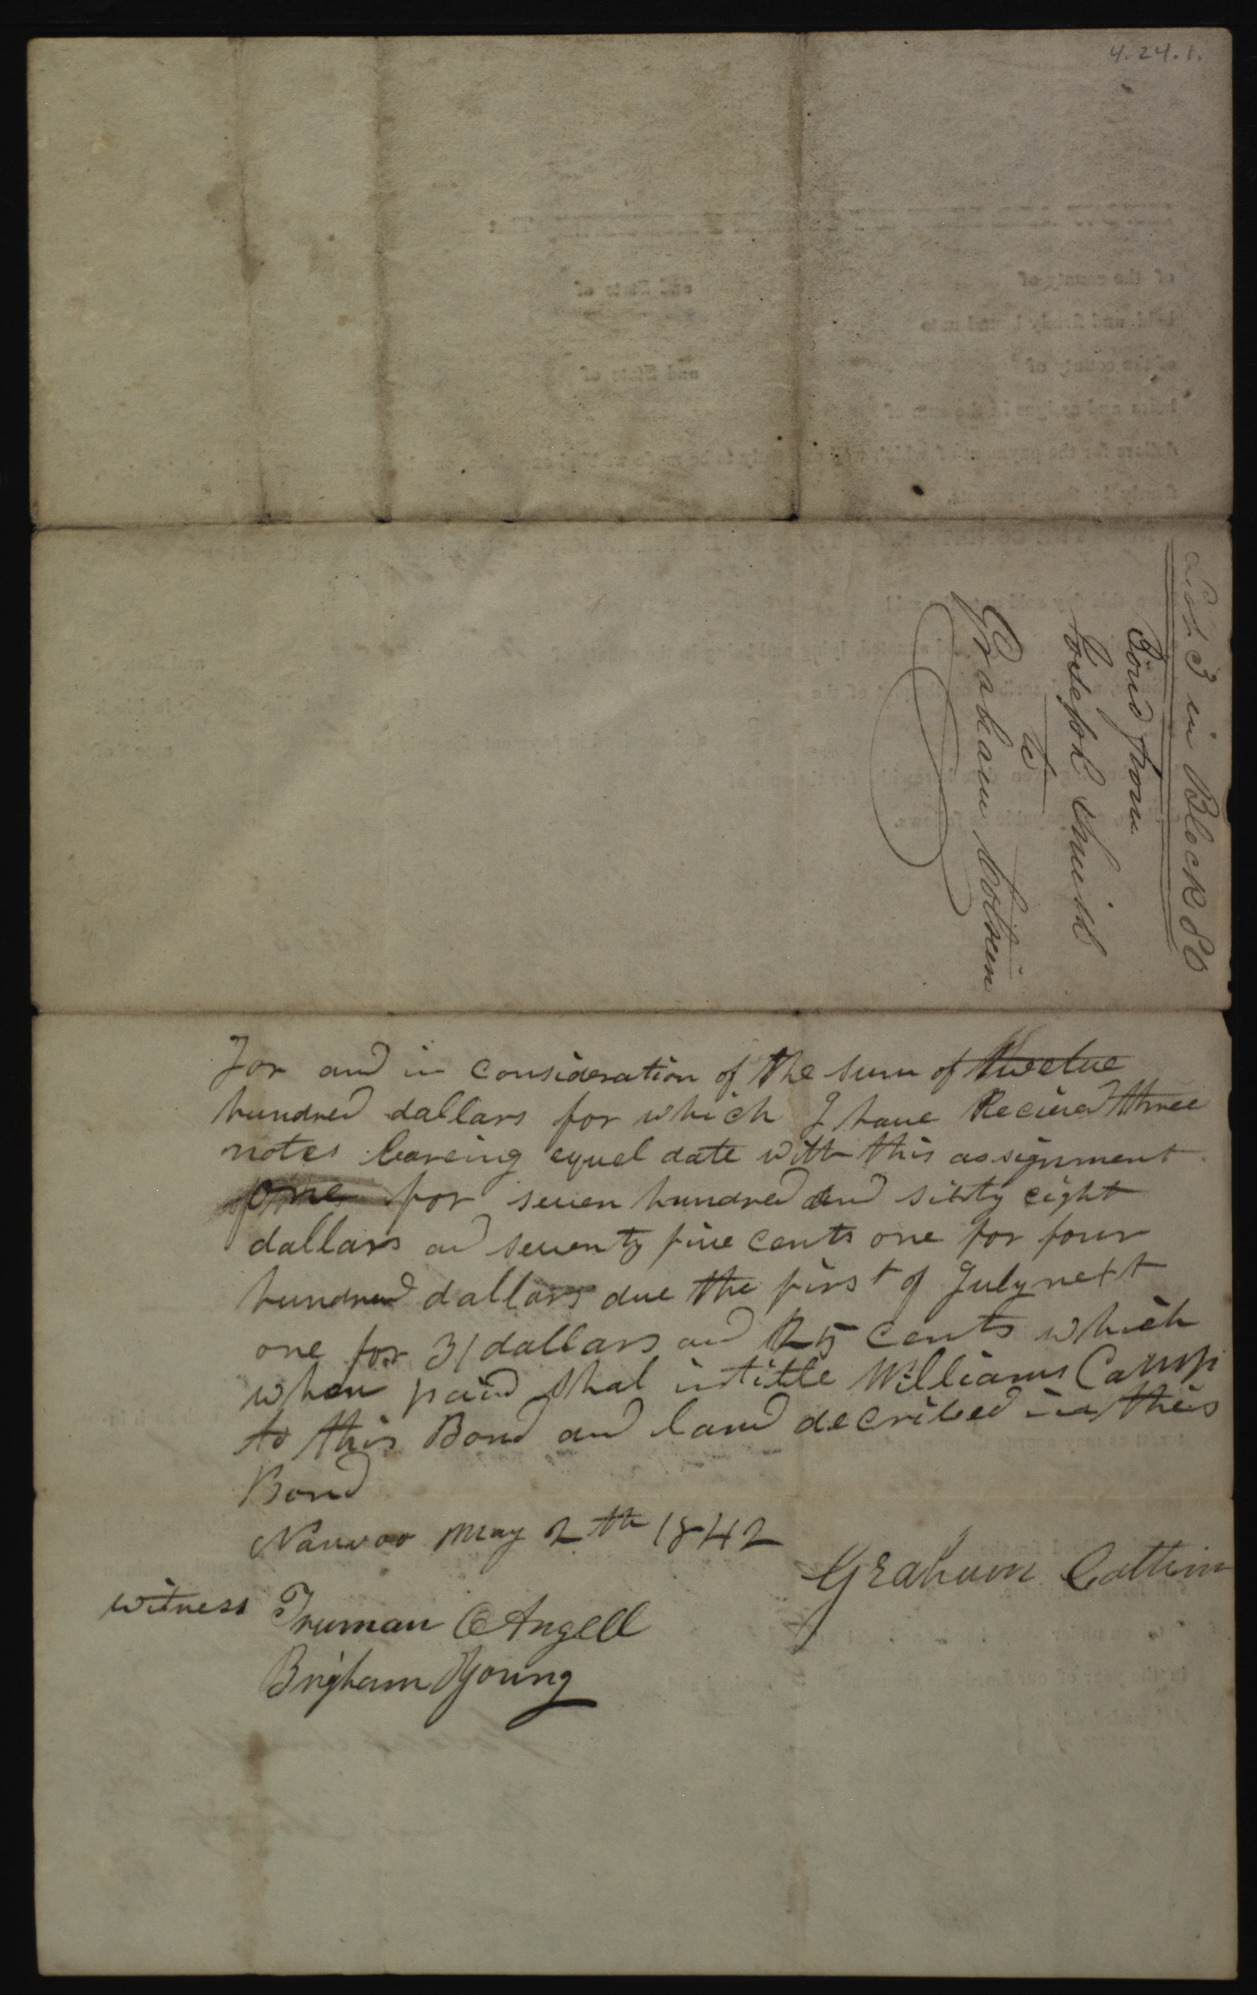 4.24.1.
Lot 3 in Block 80
Bond from
Joseph Smith
to
Graham Coltrin
For and in consideration of the sum of twelve
hundred dallars for which I have Recieved three
notes beareing equel date with this assignment
one for seven hundred and sixty eight
dallars and seventy five cents one for four
hundred dallars due the first of July next
one for 31 dallars and 25 cents which
when paid shal intitle Williams Camp
to this Bond and land decribed in this
Bond
Nauvoo May 2th 1842
Graham Coltrin
witness Truman O Angell
Brigham Young
of the county of and State of
held and firmly bound unto
of the county of and State of